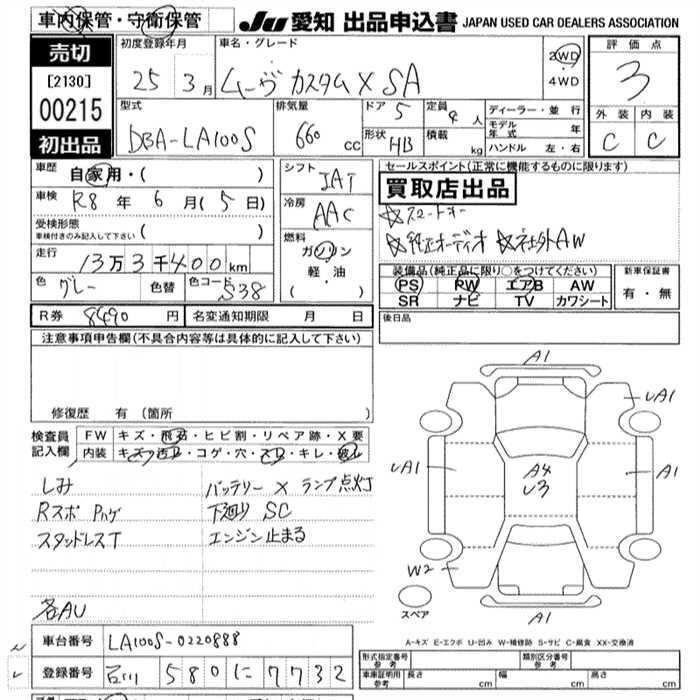 車内保管・守衛保管
JU 愛知 出品申込書 JAPAN USED CAR DEALERS ASSOCIATION
売切
[2130]
00215
初出品
初度登録年月
25 3月
車名・グレード
ムーヴ カスタム X SA
2WD
4WD
評価点
3
外装 内装
C C
型式
DBA-LA100S
排気量
660 cc
ドア 5
形状 HB
定員 4 人
積載 kg
ディーラー・並行
モデル年式 年
ハンドル 左・右
車歴 自家用・( )
車検 R8 年 6 月 ( 5 日)
受検形態
車検付きのみ記入して下さい ( )
走行 13万3千400km
色 グレー 色替 色コード S38
シフト IAT
冷房 AAC
燃料
ガソリン
軽・油
( ・ )
セールスポイント(正常に機能するものに限ります)
買取店出品
☆スマートキー
☆純正オーディオ ☆社外AW
装備品(純正品に限り○をつけてください)
PS PW エアB AW
SR ナビ TV カワシート
新車保証書
有・無
R券 8490 円 名変通知期限 月 日
後日品
注意事項申告欄(不具合内容等は具体的に記入して下さい)
修復歴 有 (箇所 )
検査員記入欄
FW キズ・飛石・ヒビ割・リペア跡・X要
内装 キズ・汚レ・コゲ・穴・スレ・キレ・破レ
しみ バッテリー× ランプ点灯
Rスポ Pハゲ 下廻り SC
スタッドレスT エンジン止まる
各AU
A1
UA1
UA1
A4
U3
A1
W2
A1
スペア
A-キズ E-エクボ U-凹み W-補修跡 S-サビ C-腐食 XX-交換済
車台番号 LA100S-0220888
登録番号 石川 580 に 7732
形式指定番号 参考
類別区分番号 参考
車庫証明用 参考 長さ cm 幅 cm 高さ cm